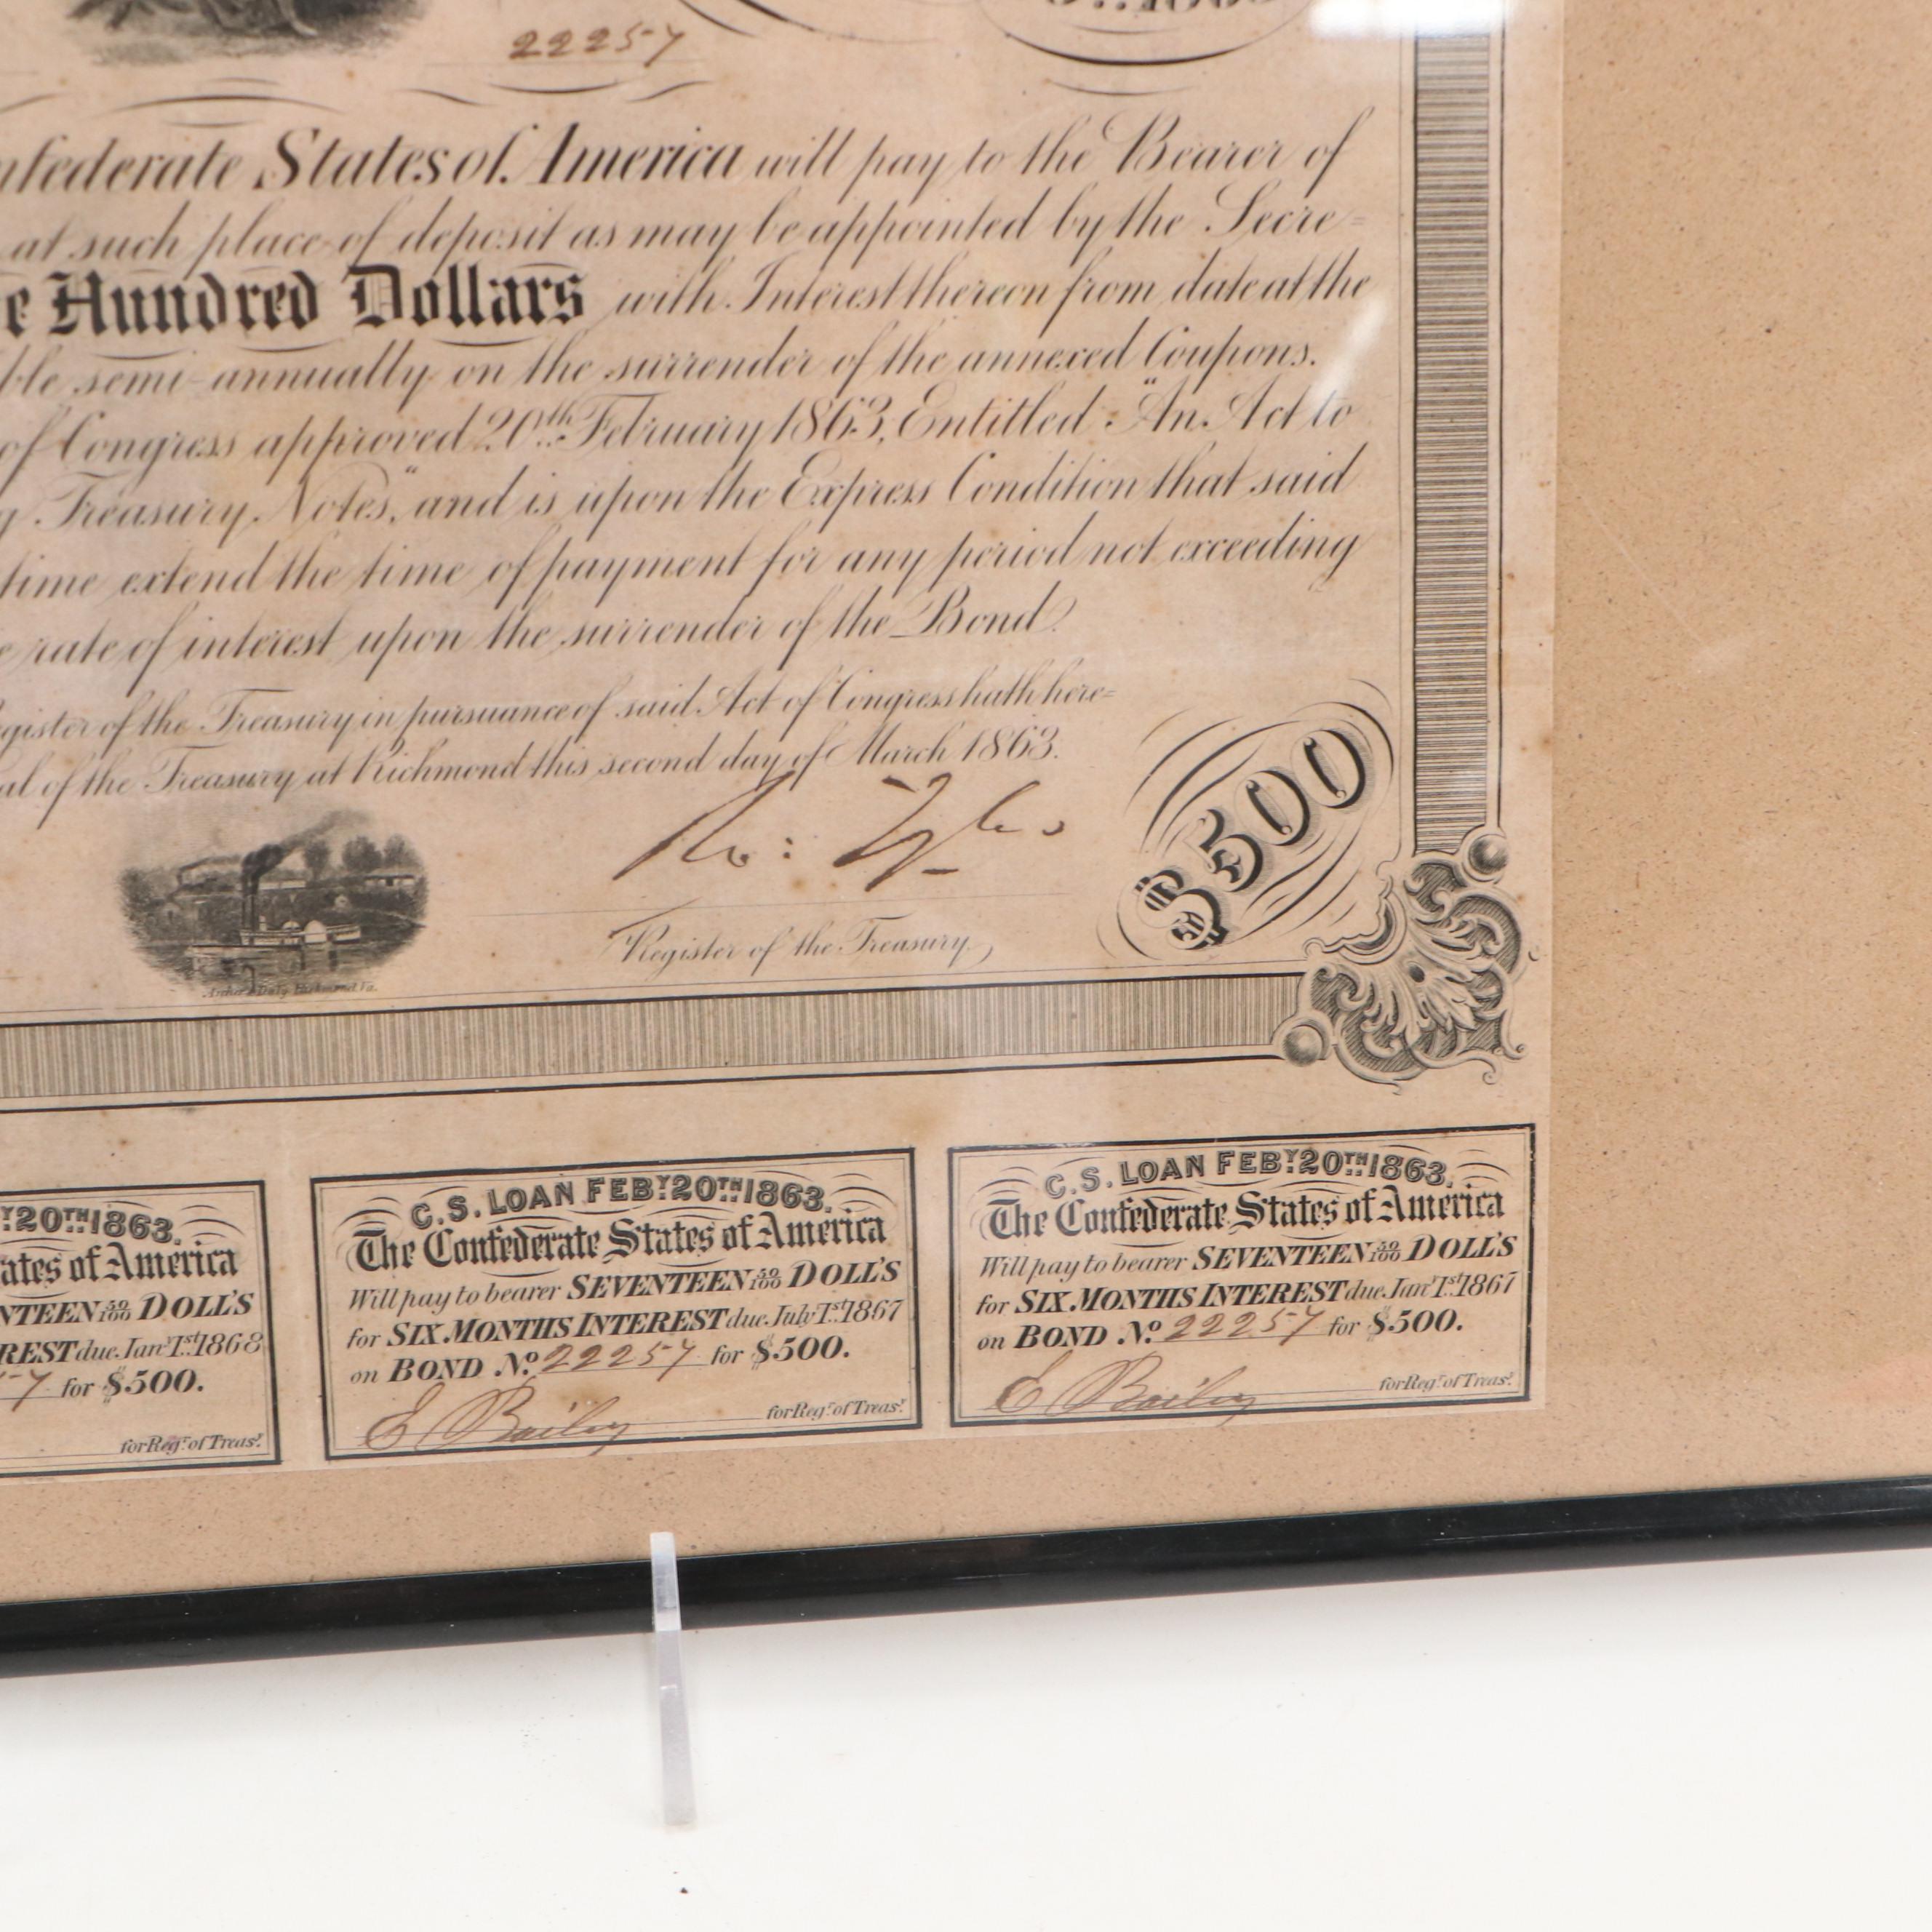 22257
nfederate States of America will pay to the Bearer of
at such place of deposit as may be appointed by the Secre=
e Hundred Dollars with Interest thereon from date at the
ble semi-annually on the surrender of the annexed Coupons.
of Congress approved 20th February 1863, Entitled "An Act to
g Treasury Notes," and is upon the Express Condition that said
time extend the time of payment for any period not exceeding
e rate of interest upon the surrender of the Bond.
egister of the Treasury in pursuance of said Act of Congress hath here=
al of the Treasury at Richmond this second day of March 1863.
Ro: Tyler
Register of the Treasury,
$500
Archer & Daly, Richmond, Va.
Y 20TH 1863.
ates of America
NTEEN 50/100 DOLL'S
REST due Jany 1st 1868
57 for $500.
for Regr. of Treasy.
C. S. LOAN FEBY. 20TH 1863.
The Confederate States of America
Will pay to bearer SEVENTEEN 50/100 DOLL'S
for SIX MONTHS INTEREST due July 1st 1867
on BOND No. 22257 for $500.
E Bailey
for Regr. of Treasy.
C. S. LOAN FEBY. 20TH 1863.
The Confederate States of America
Will pay to bearer SEVENTEEN 50/100 DOLL'S
for SIX MONTHS INTEREST due Jany 1st 1867
on BOND No. 22257 for $500.
E Bailey
for Regr. of Treasy.